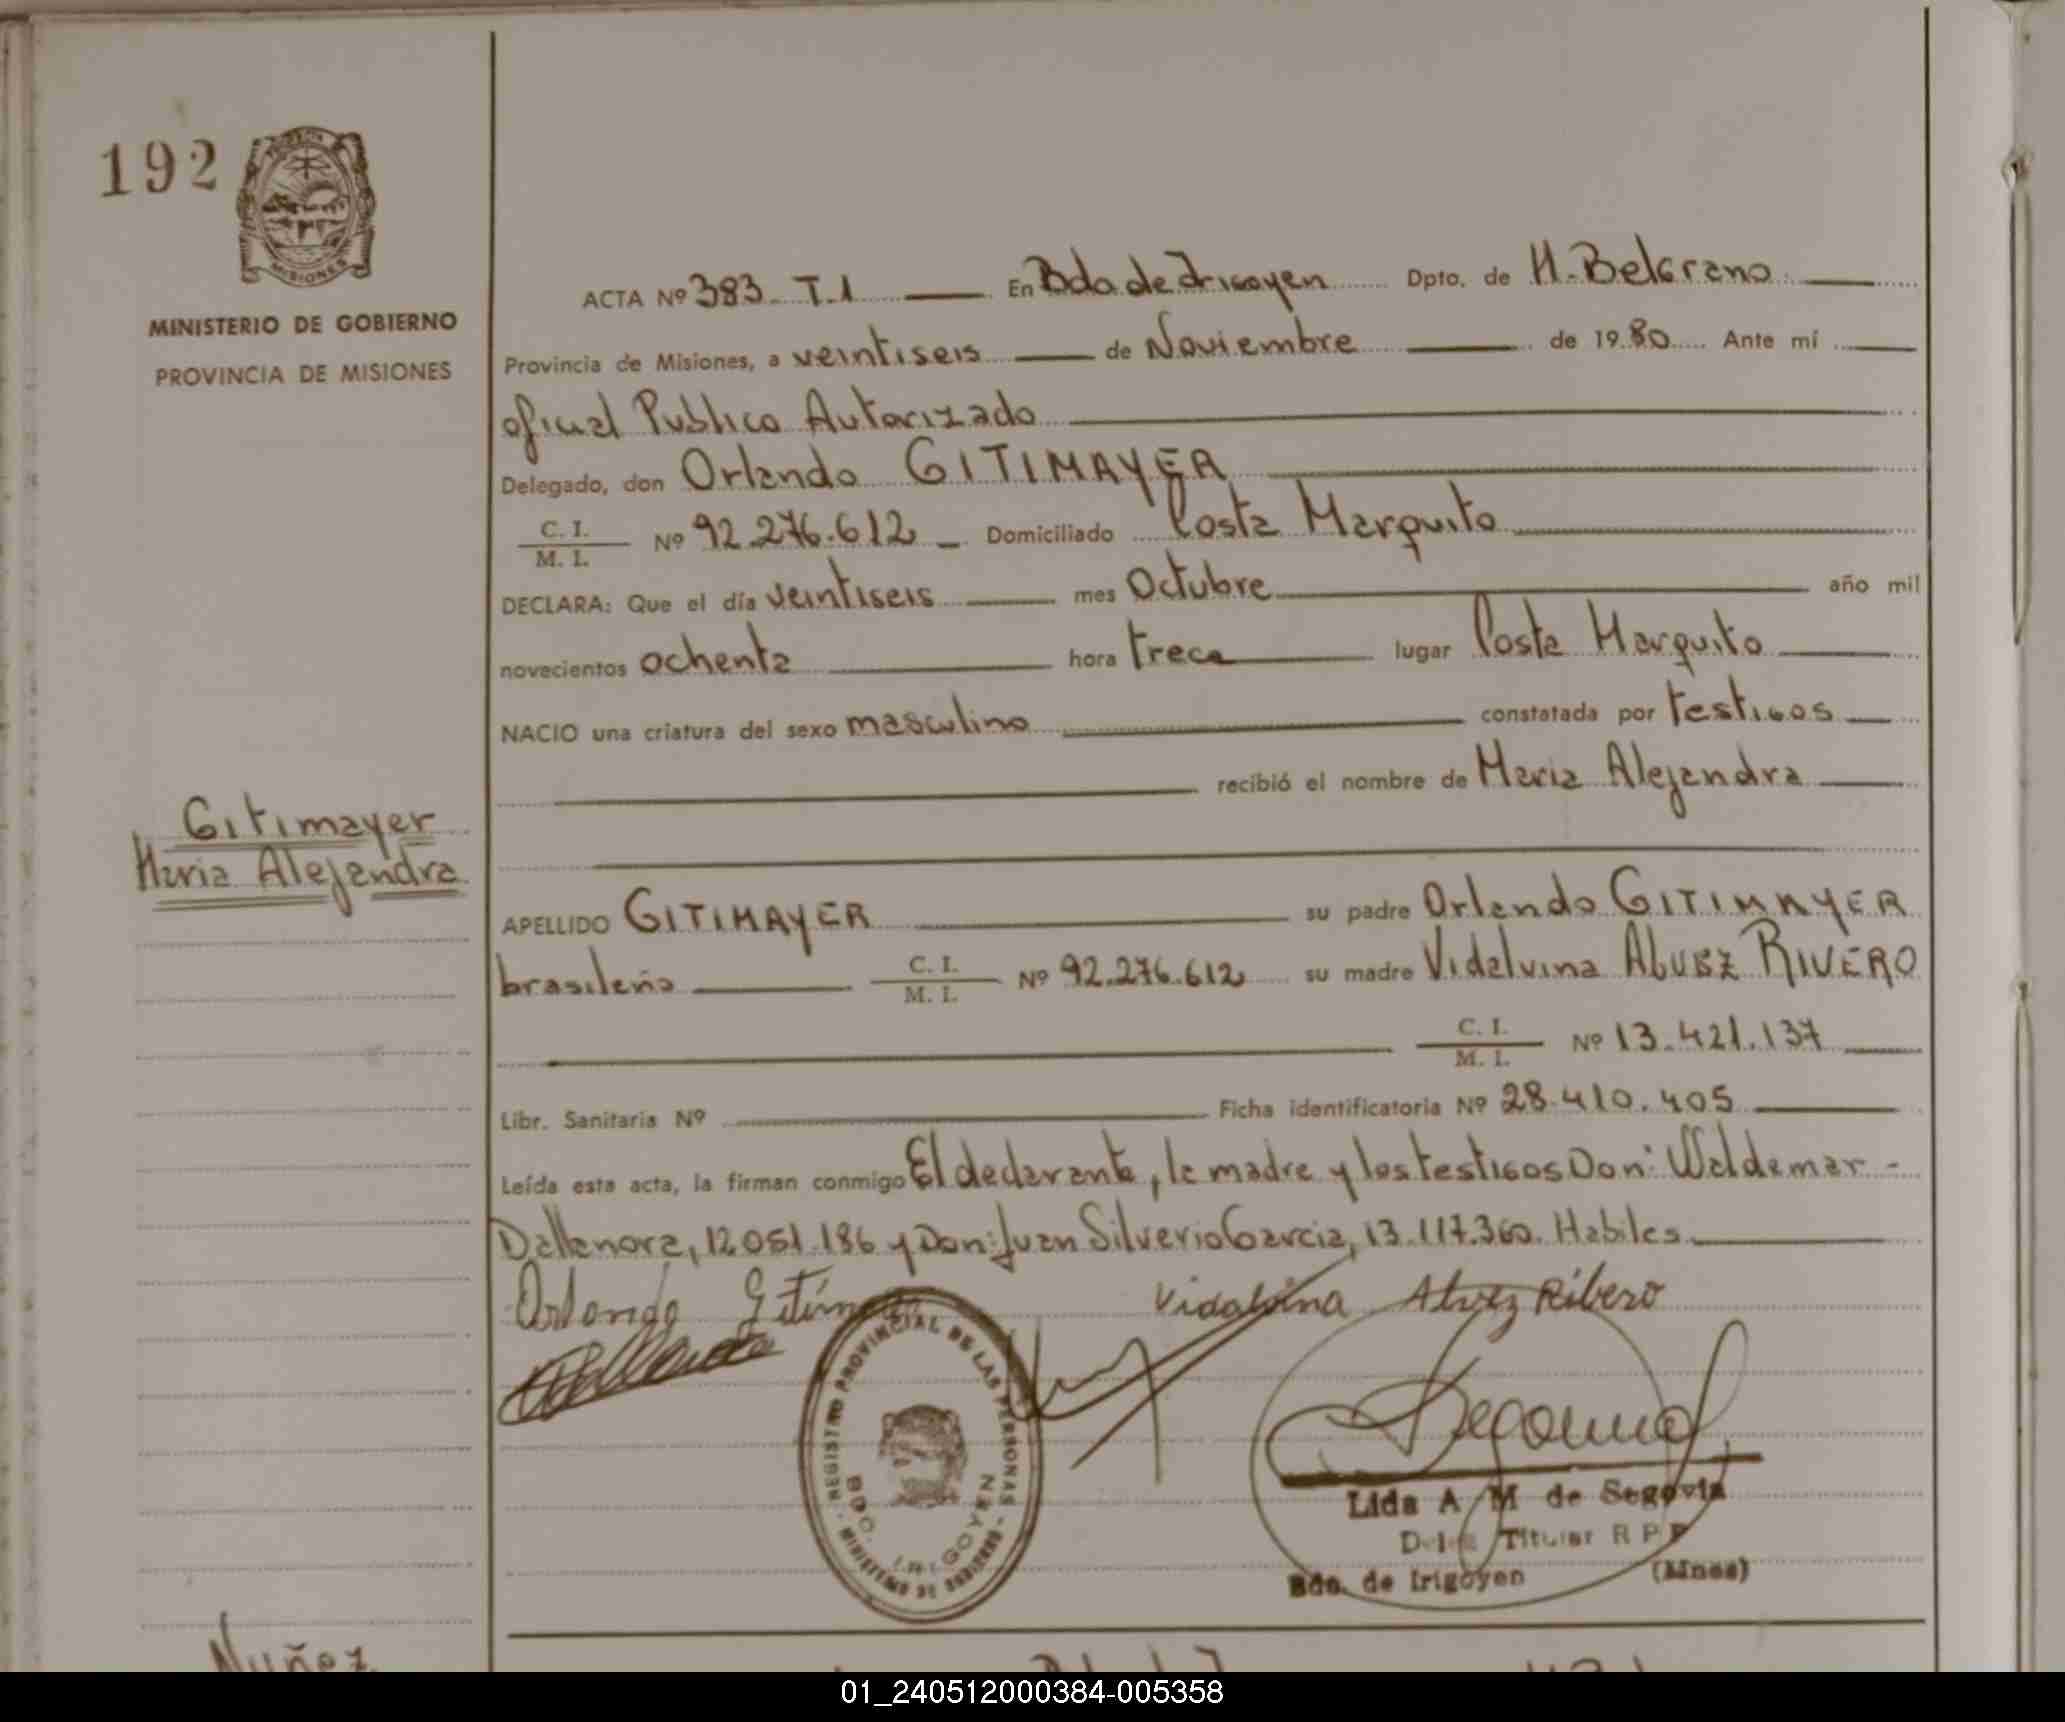 192
MISIONES
MINISTERIO DE GOBIERNO
PROVINCIA DE MISIONES
ACTA Nº 383. T.1 En Bdo de Irigoyen Dpto. de H. Belgrano
Provincia de Misiones, a veintiseis de Noviembre de 1980 Ante mí
oficial Publico Autorizado
Delegado, don Orlando GITIMAYER
C. I.
M. I. Nº 92.276.612 Domiciliado Costa Marquito
DECLARA: Que el día veintiseis mes Octubre año mil
novecientos ochenta hora trece lugar Costa Marquito
NACIO una criatura del sexo masculino constatada por testigos
recibió el nombre de Maria Alejandra
Gitimayer
Maria Alejandra
APELLIDO GITIMAYER su padre Orlando GITIMAYER
brasileño C. I.
M. I. Nº 92.276.612 su madre Vidalvina ALVEZ RIVERO
C. I.
M. I. Nº 13.421.137
Libr. Sanitaria Nº Ficha identificatoria Nº 28.410.405
Leída esta acta, la firman conmigo El declarante, la madre y los testigos Don: Waldemar -
Dallanora, 12051.186 y Don: Juan Silverio Garcia, 13.117.360. Habiles
Orlando
Vidalvina Alvez Ribero
REGISTRO PROVINCIAL DE LAS PERSONAS - MINISTERIO DE GOBIERNO -
BDO. IRIGOYEN
Lida A M de Segovia
Titular R P P
Bdo. de Irigoyen (Mnes)
Nuñez
01_240512000384-005358